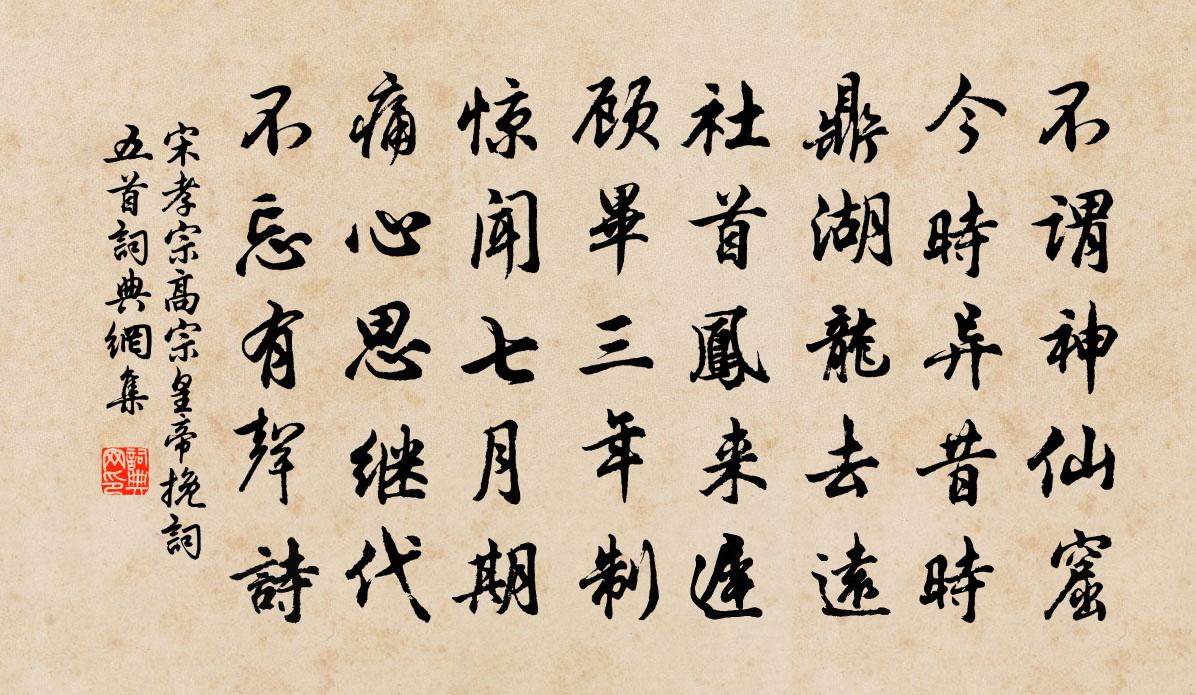 不谓神仙窟
今時异昔時
鼎湖龍去遠
社首鳳来遲
顾畢三年制
惊闻七月期
痛心思继代
不忘有聲詩
宋孝宗高宗皇帝挽詞
五首詞典網集
詞典
网印